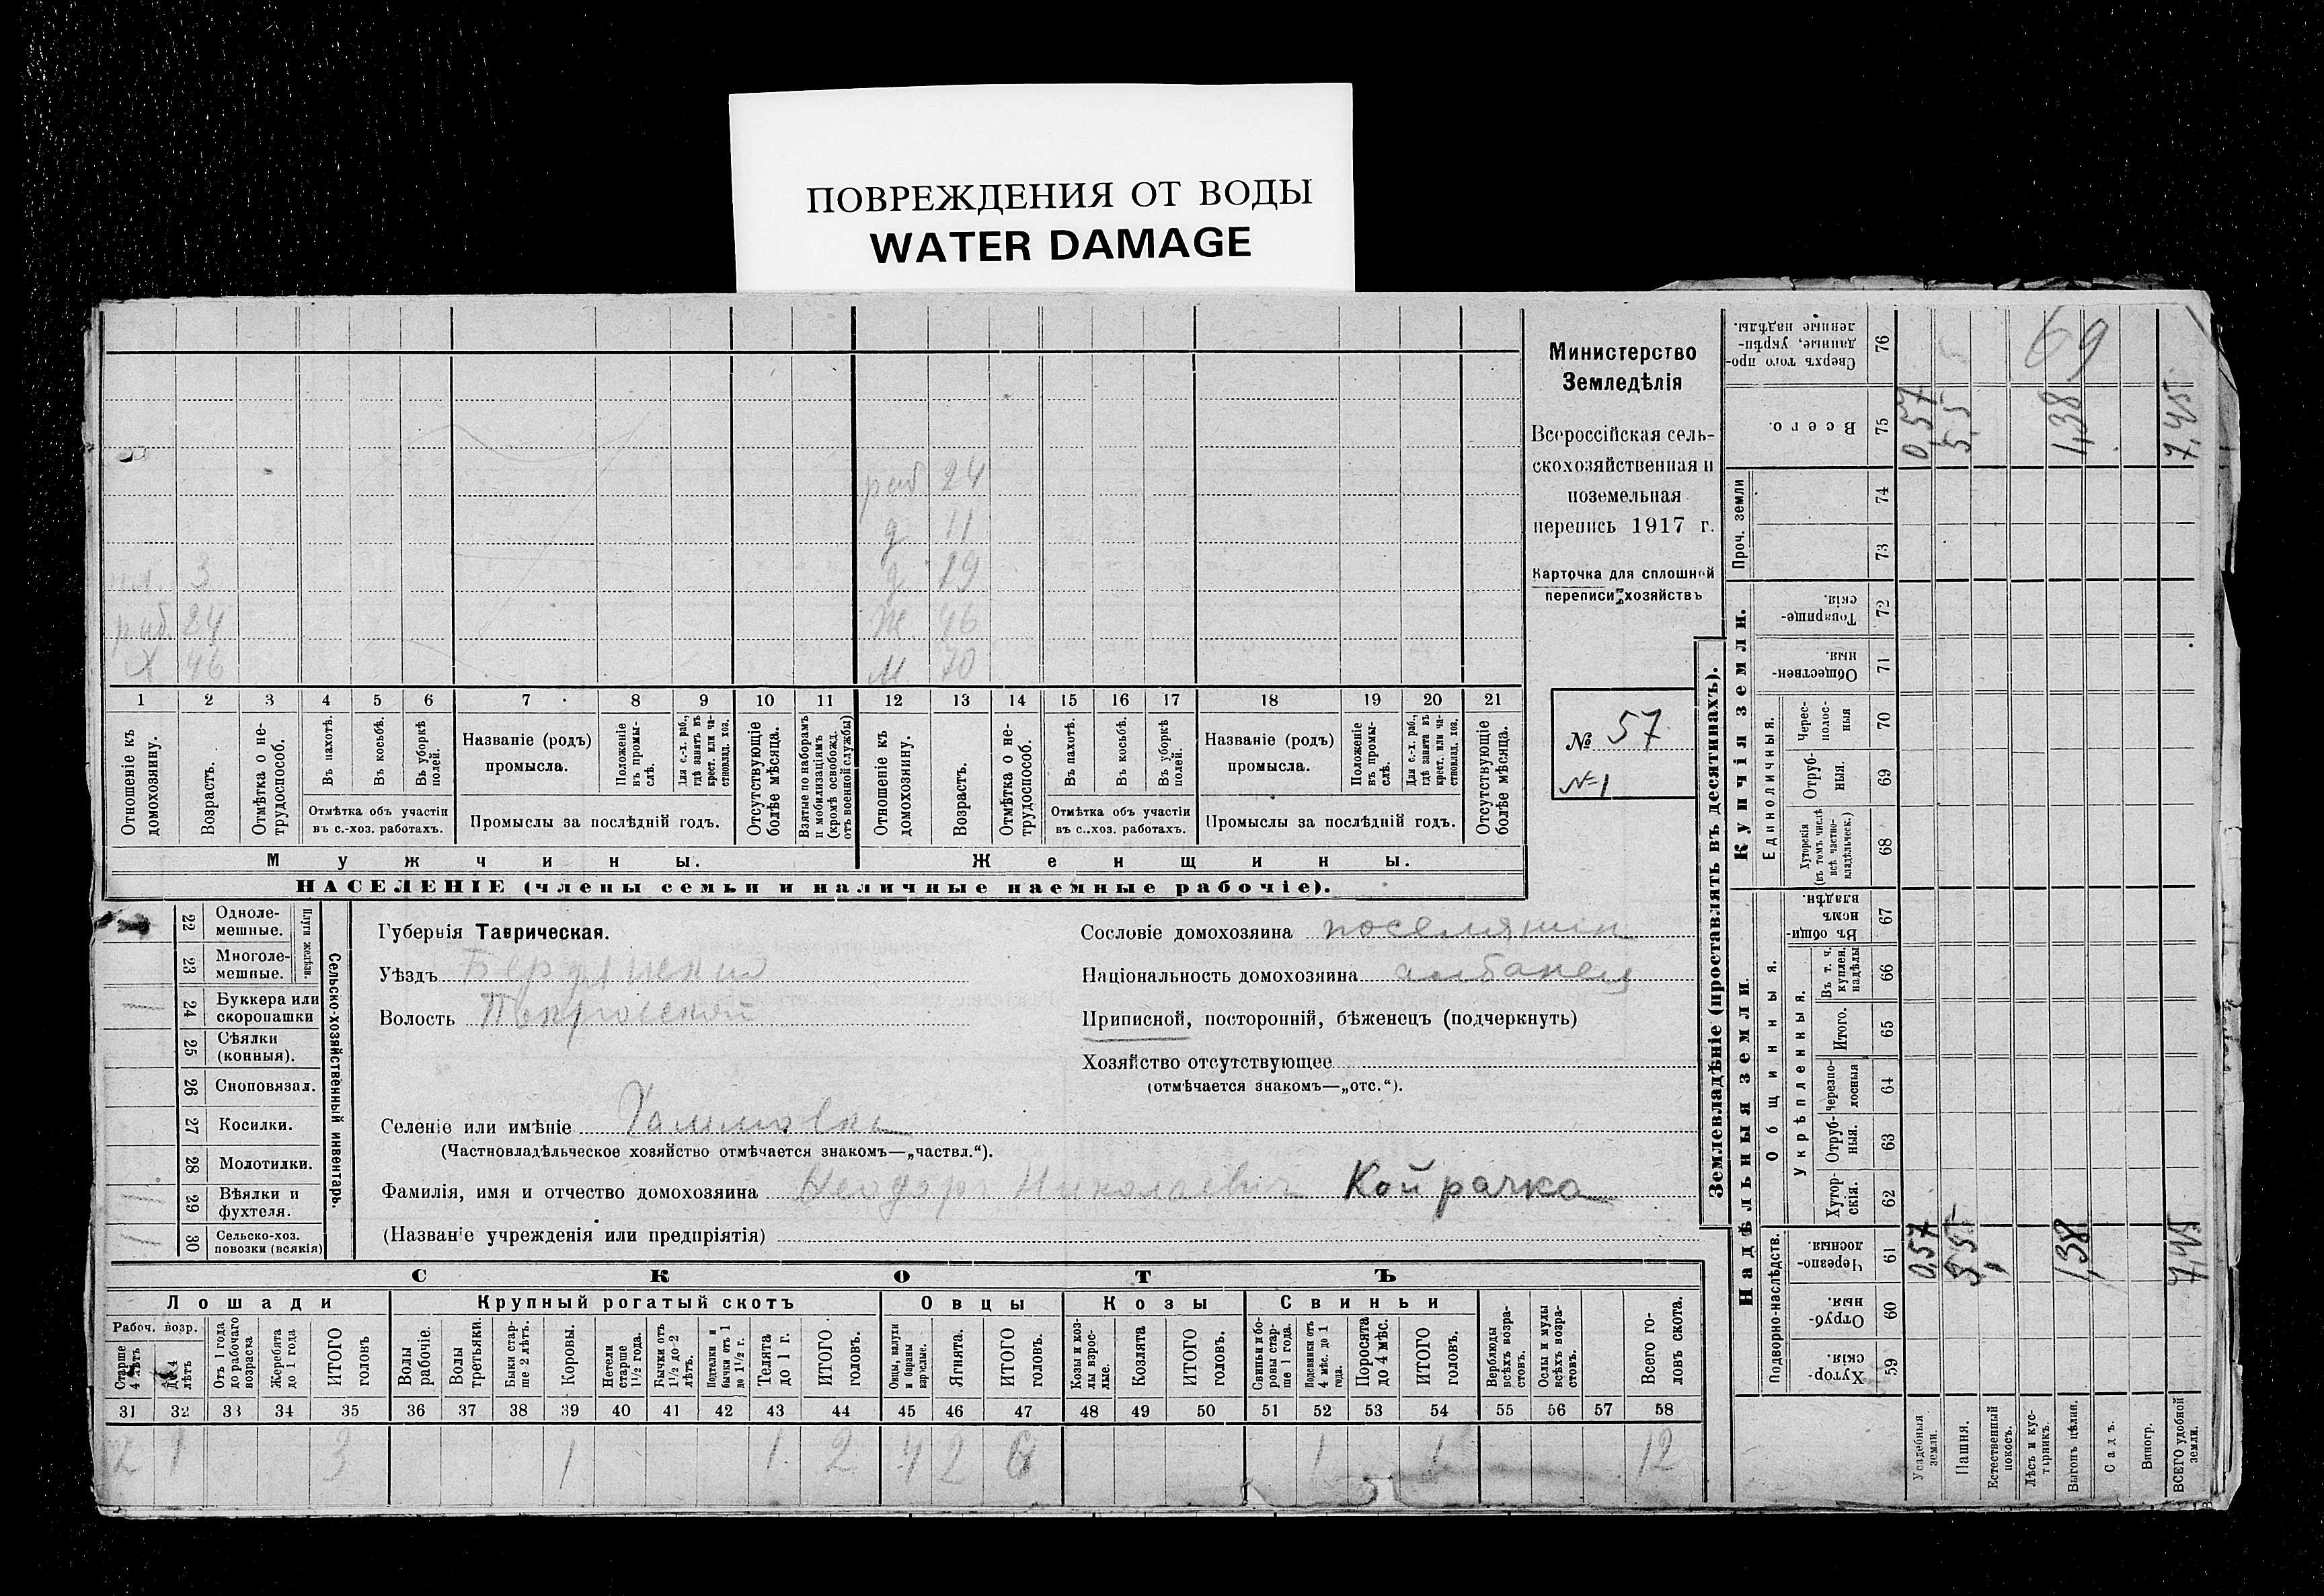 ПОВРЕЖДЕНИЯ ОТ ВОДЫ
WATER DAMAGE
Министерство
Земледѣлія
Всероссійская сель-
скохозяйственная и
поземельная
перепись 1917 г.
Карточка для сплошной
переписи хозяйствъ
№ 57
№ 1
раб 24
д 11
д 19
3
раб. 24 Ж 46
Х 46 М 70
1 2 3 4 5 6 7 8 9 10 11 12 13 14 15 16 17 18 19 20 21
Отношеніе къ домохозяину.
Возрастъ.
Отмѣтка о не-трудоспособ.
Въ пахотѣ.
Въ косьбѣ.
Въ уборкѣ полей.
Отмѣтка объ участіи въ с.-хоз. работахъ.
Названіе (родъ) промысла.
Положеніе въ промы-слѣ.
Для с.-х. раб., гдѣ занятъ въ крест. или ча-стновлад. хоз.
Промыслы за послѣдній годъ.
Отсутствующіе болѣе мѣсяца.
Взятые по наборамъ и мобилизаціямъ (кромѣ освобожд. отъ военной службы)
Отношеніе къ домохозяину.
Возрастъ.
Отмѣтка о не-трудоспособ.
Въ пахотѣ.
Въ косьбѣ.
Въ уборкѣ полей.
Отмѣтка объ участіи въ с.-хоз. работахъ.
Названіе (родъ) промысла.
Положеніе въ промы-слѣ.
Для с.-х. раб., гдѣ занята въ крест. или ча-стновлад. хоз.
Промыслы за послѣдній годъ.
Отсутствующіе болѣе мѣсяца.
Мужчины. Женщины.
НАСЕЛЕНІЕ (члены семьи и наличные наемные рабочіе).
Сельско-хозяйственный инвентарь.
Плуги желѣзн.
22 Одноле-мешные.
23 Многоле-мешные.
1 24 Буккера или скоропашки
25 Сѣялки (конныя).
26 Сноповязал.
27 Косилки.
28 Молотилки.
1 29 Вѣялки и фухтеля.
1 30 Сельско-хоз. повозки (всякія)
Губернія Таврическая.
Уѣздъ Бердянскій
Волость Покровской
Селеніе или имѣніе Гаммовка
(Частновладѣльческое хозяйство отмѣчается знакомъ—„частвл.“).
Фамилія, имя и отчество домохозяина Феодоръ Николаевич Койрачка
(Названіе учрежденія или предпріятія)
Сословіе домохозяина поселянин
Національность домохозяина албанец
Приписной, посторонній, бѣженецъ (подчеркнуть)
Хозяйство отсутствующее
(отмѣчается знакомъ—„отс.“).
СКОТЪ
Лошади Крупный рогатый скотъ Овцы Козы Свиньи
Рабоч. возр.
Старше 4 лѣтъ
До 4 лѣтъ
Отъ 1 года до рабочаго возраска
Жеребята до 1 года
ИТОГО головъ
Волы рабочіе.
Волы третьяки.
Быки стар-ше 2 лѣтъ.
Коровы.
Нетели старше 1½ года.
Бычки отъ 1½ до 2 лѣтъ.
Подтелки и бычки отъ 1 до 1½ г.
Телята до 1 г.
ИТОГО головъ.
Овцы, валухи и бараны взрослые.
Ягнята.
ИТОГО головъ.
Козы и коз-лы взрос-лые.
Козлята
ИТОГО головъ.
Свиньи и бо-ровы стар-ше 1 года.
Подсвинки отъ 4 мѣс. до 1 года.
Поросята до 4 мѣс.
ИТОГО головъ.
Верблюды всѣхъ возра-стовъ.
Ослы и мулы всѣхъ возра-стовъ.
Всего го-ловъ скота.
31 32 33 34 35 36 37 38 39 40 41 42 43 44 45 46 47 48 49 50 51 52 53 54 55 56 57 58
2 1 3 1 1 2 4 2 6 1 1 12
Землевладѣніе (проставлять въ десятинахъ).
Сверхъ того про-данные, укрѣп-ленные надѣлы. 76
69
Всего. 75 0,57 5,5 1,38 7,45
Проч. земли 74 73
Купчія земли.
Товарище-скія. 72
Обществен-ныя. 71
Единоличныя.
Черес-полос-ныя 70
Отруб-ныя. 69
Хуторскія (въ томъ числѣ всѣ частно-владѣльческ.) 68
Надѣльныя земли.
Общинныя.
Въ общин-номъ владѣн. 67
Укрѣпленныя.
Въ т. ч. куплен. надѣлы 66
Итого. 65
Черезпо-лосныя 64
Отруб-ныя. 63
Хутор-скія. 62
Подворно-наслѣдств.
Черезпо-лосныя. 61 0,57 5,5 1,38 7,45
Отруб-ныя. 60
Хутор-скія. 59
Усадебныя земли.
Пашня.
Естественный покосъ.
Лѣсъ и кус-тарникъ.
Выгонъ цѣлин.
Садъ.
Виногр.
ВСЕГО удобной земли.